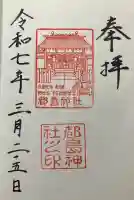 奉拝
都島神社
都島神
社之印
令和七年三月二十五日